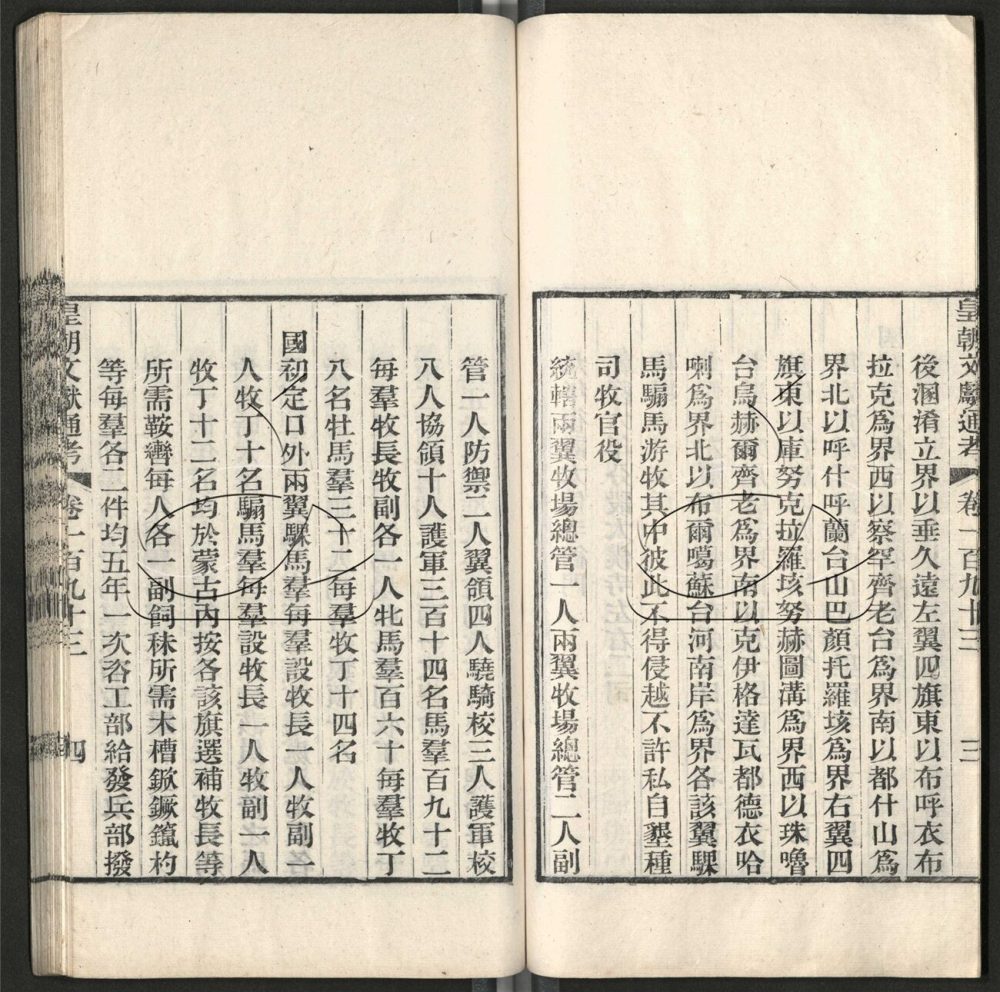 皇朝文獻通考 卷一百九十三 三
後溷淆立界以垂久遠左翼四旗東以布呼衣布
拉克爲界西以察罕齊老台爲界南以都什山爲
界北以呼什呼蘭台山巴顏托羅垓爲界右翼四
旗東以庫努克拉羅垓努赫圖溝爲界西以珠嚕
台烏赫爾齊老爲界南以克伊格達瓦都德衣哈
喇爲界北以布爾噶蘇台河南岸爲界各該翼騍
馬騸馬游牧其中彼此不得侵越不許私自墾種
司牧官役
統轄兩翼牧場總管一人兩翼牧場總管二人副
管一人防禦二人翼領四人驍騎校三人護軍校
八人協領十人護軍三百十四名馬羣百九十二
每羣牧長牧副各一人牝馬羣百六十每羣牧丁
八名牡馬羣三十二每羣牧丁十四名
國初定口外兩翼騍馬羣每羣設牧長一人牧副一
人牧丁十名騸馬羣每羣設牧長一人牧副一人
牧丁十二名均於蒙古內按各該旗選補牧長等
所需鞍轡每人各一副飼秣所需木槽鍁鐝䥥杓
等每羣各二件均五年一次咨工部給發兵部撥
皇朝文獻通考 卷一百九十三 四